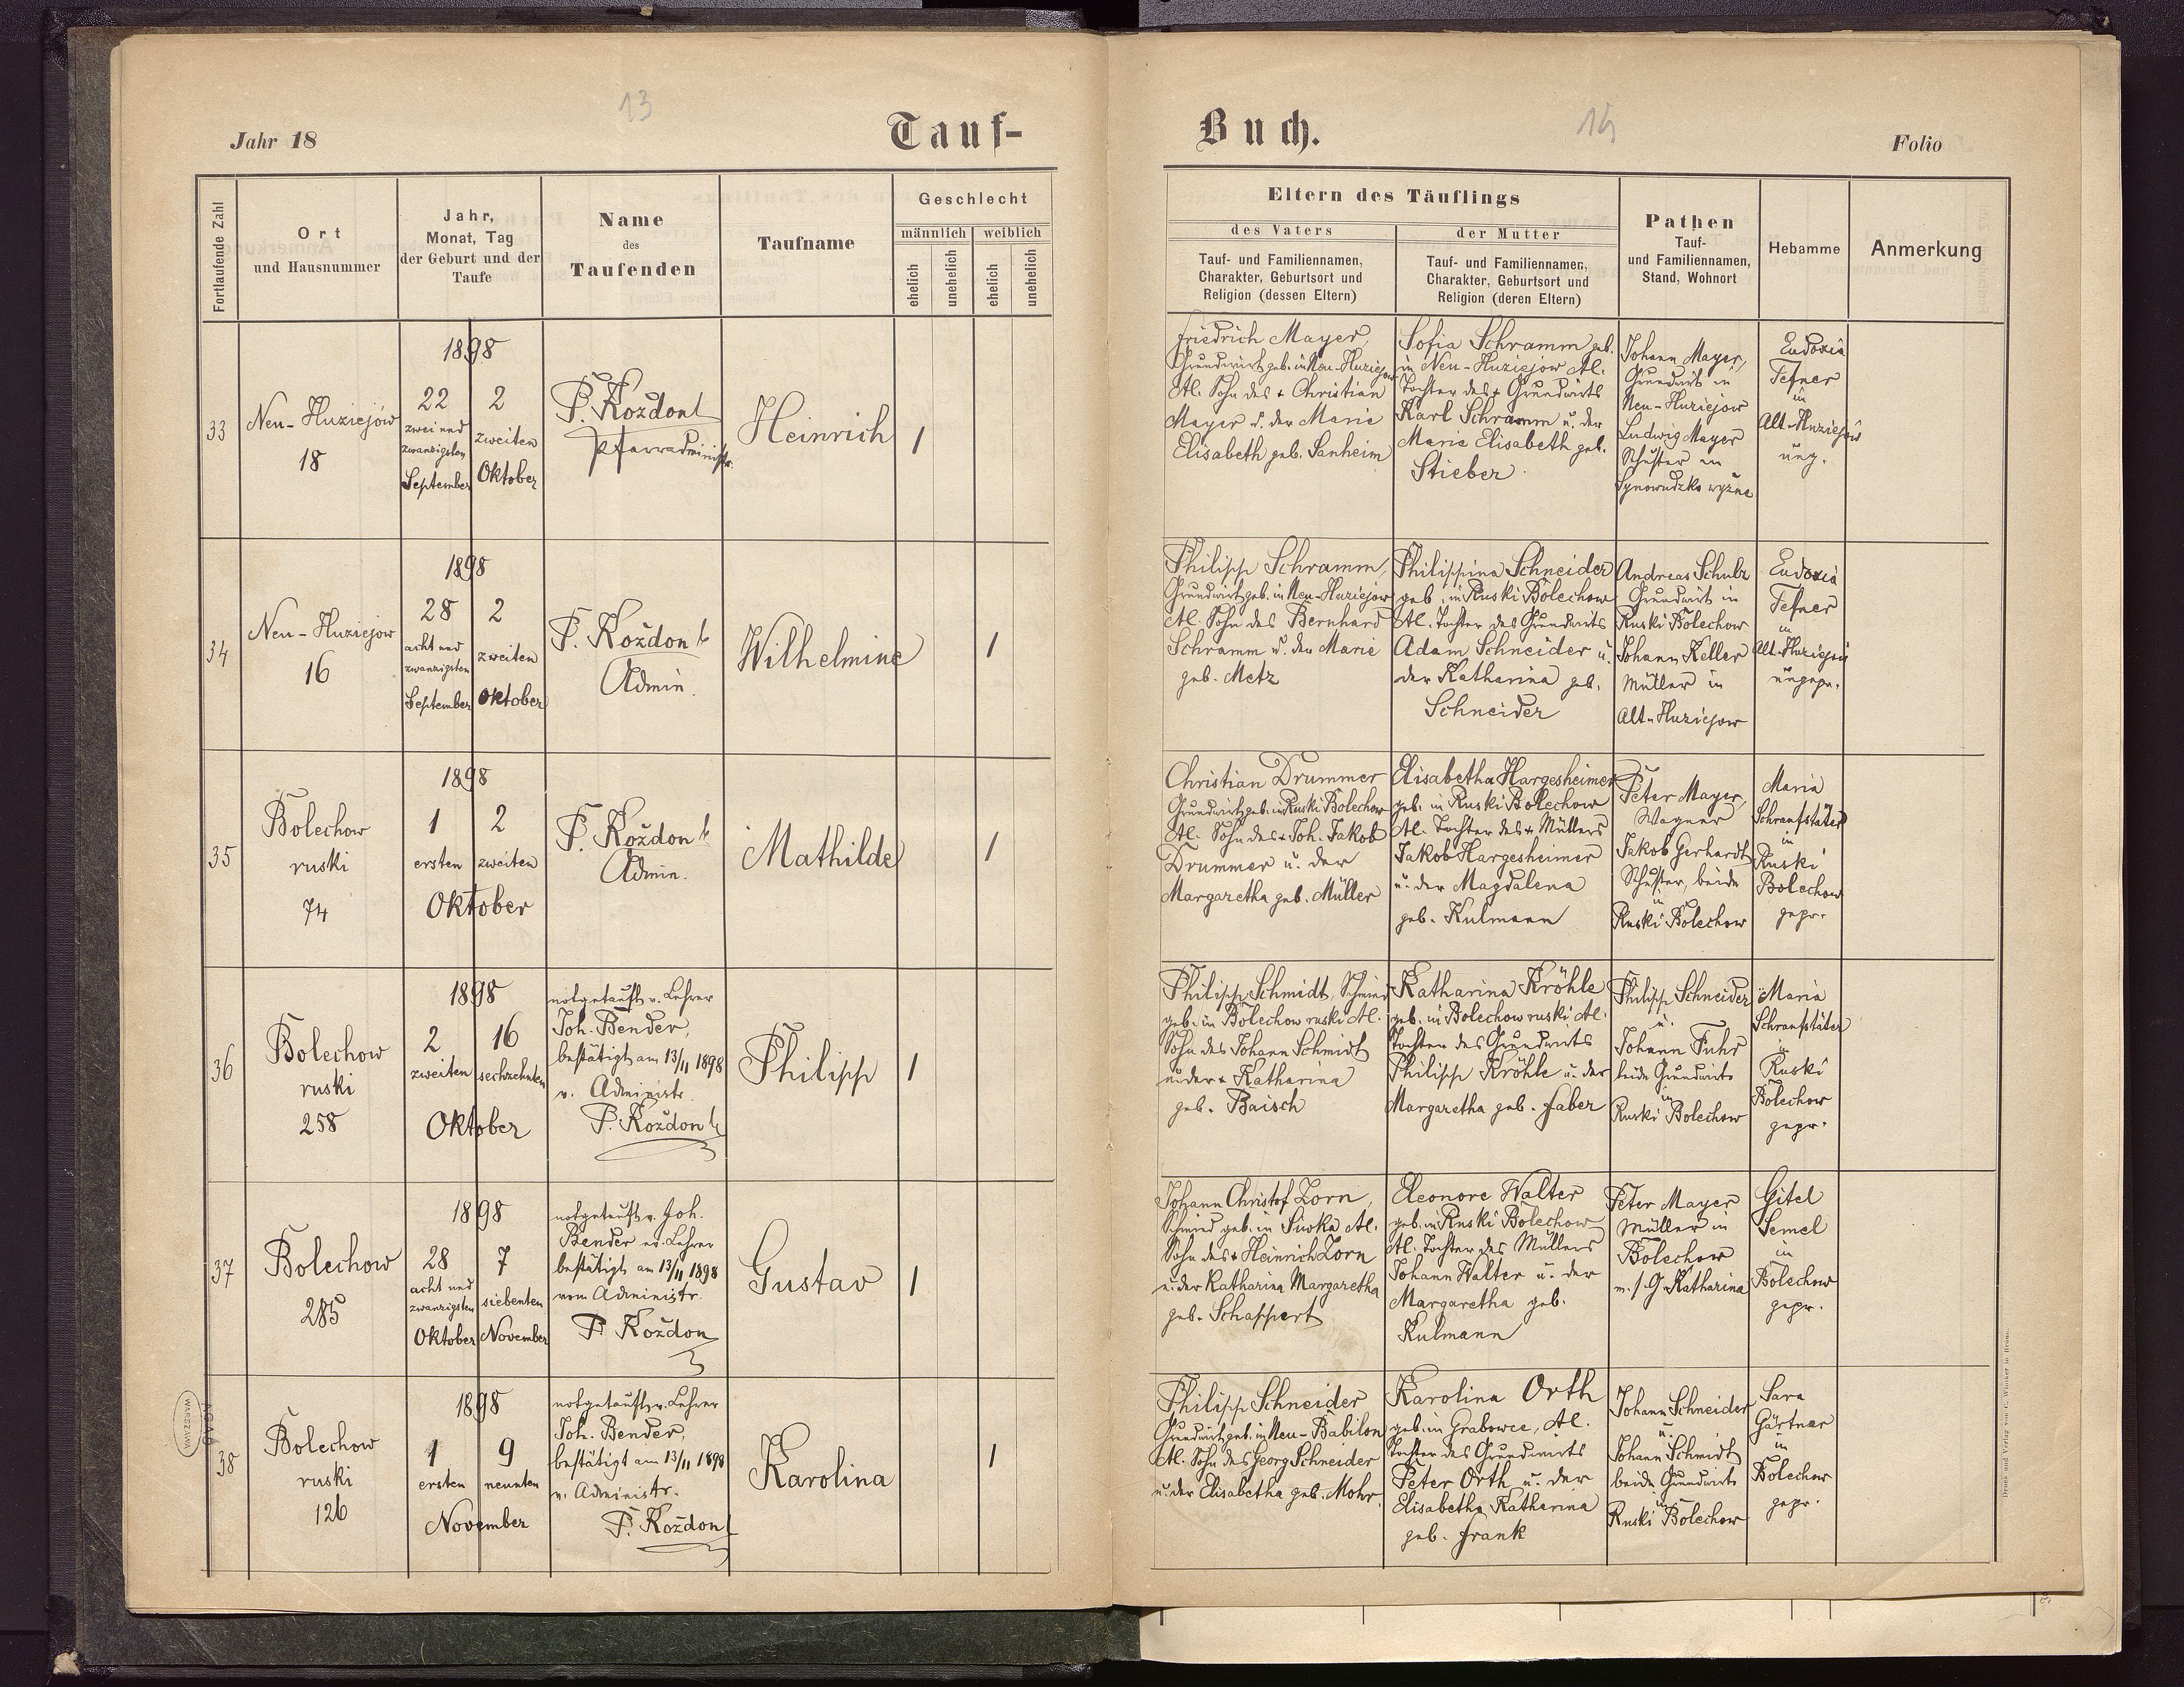 13
Jahr 18
Tauf-
Buch.
14
Folio
Fortlaufende Zahl
Ort
und Hausnummer
Jahr,
Monat, Tag
der Geburt und der
Taufe
Name
des
Taufenden
Taufname
Geschlecht
männlich
weiblich
ehelich
unehelich
ehelich
unehelich
Eltern des Täuflings
des Vaters
Tauf- und Familiennamen,
Charakter, Geburtsort und
Religion (dessen Eltern)
der Mutter
Tauf- und Familiennamen,
Charakter, Geburtsort und
Religion (deren Eltern)
Pathen
Tauf-
und Familiennamen,
Stand, Wohnort
Hebamme
Anmerkung
33
Neu-Huziejów
18
1898
22
zwei und
zwanzigsten
September
2
zweiten
Oktober
P. Kożdon
Pfarradministr.
Heinrich
1
Friedrich Mayer,
Grundwirt geb. in Neu-Huziejow
Al. Sohn des + Christian
Mayer u. der Marie
Elisabeth geb. Sanheim
Sofia Schramm geb.
in Neu-Huziejow Al.
Tochter des + Grundwirts
Karl Schramm u. der
Marie Elisabeth geb.
Stieber
Johann Mayer,
Grundwirt in
Neu-Huziejow
Ludwig Mayer
Schuster in
Synowudzko wyżne
Eudoxia
Fefner
in
Alt-Huziejów
ung.
34
Neu-Huziejow
16
1898
28
acht und
zwanzigsten
September
2
zweiten
Oktober
P. Kożdon
Admin.
Wilhelmine
1
Philipp Schramm,
Grundwirt geb. in Neu-Huziejow
Al. Sohn des Bernhard
Schramm u. der Marie
geb. Metz
Philippina Schneider
geb. in Ruski Bolechow
Al. Tochter des Grundwirts
Adam Schneider u.
der Katharina geb.
Schneider
Andreas Schulz
Grundwirt in
Ruski Bolechow
Johann Keller
Müller in
Alt-Huziejow
Eudoxia
Fefner
in
Alt-Huziejów
ungepr.
35
Bolechow
ruski
74
1898
1
ersten
2
zweiten
Oktober
P. Kożdon
Admin.
Mathilde
1
Christian Drummer
Grundwirt geb. in Ruski Bolechow
Al. Sohn des + Joh. Jakob
Drummer u. der
Margaretha geb. Müller
Elisabetha Hargesheimer
geb. in Ruski Bolechow
Al. Tochter des + Müllers
Jakob Hargesheimer
u. der Magdalena
geb. Kulmann
Peter Mayer,
Wagner
Jakob Gerhardt
Schuster, beide
in
Ruski Bolechow
Maria
Schranfstäter
in
Ruski
Bolechow
gepr.
36
Bolechow
ruski
258
1898
2
zweiten
16
sechzehnten
Oktober
notgetauft v. Lehrer
Joh. Bender,
bestätigt am 13/11 1898
v. Administr.
P. Kożdon
Philipp
1
Philipp Schmidt, Schmied
geb. in Bolechow ruski Al.
Sohn des Johann Schmidt
u. der + Katharina
geb. Baisch
Katharina Kröhle
geb. in Bolechow ruski Al.
Tochter des Grundwirts
Philipp Kröhle u. der
Margaretha geb. Faber
Philipp Schneider
u.
Johann Fuhr
beide Grundwirte
in
Ruski Bolechow
Maria
Schranfstäter
in
Ruski
Bolechow
gepr.
37
Bolechow
285
1898
28
acht und
zwanzigsten
Oktober
7
siebenten
November
notgetauft v. Joh.
Bender ev. Lehrer
bestätigt am 13/11 1898
vom Administr.
P. Kożdon
Gustav
1
Johann Christof Zorn,
Schmied geb. in Siwka Al.
Sohn des + Heinrich Zorn
u. der Katharina Margaretha
geb. Schappert
Eleonore Walter
geb. in Ruski Bolechow
Al. Tochter des Müllers
Johann Walter u. der
Margaretha geb.
Kulmann
Peter Mayer
Müller in
Bolechow
m. s. G. Katharina
Gitel
Semel
in
Bolechow
gepr.
38
Bolechow
ruski
126
1898
1
ersten
9
neunten
November
notgetauft v. Lehrer
Joh. Bender,
bestätigt am 13/11 1898
v. Administr.
P. Kożdon
Karolina
1
Philipp Schneider
Grundwirt geb. in Neu-Babilon
Al. Sohn des Georg Schneider
u. der Elisabetha geb. Mohr
Karolina Orth
geb. in Grabowce, Al.
Tochter des Grundwirts
Peter Orth u. der
Elisabetha Katharina
geb. Frank
Johann Schneider
u.
Johann Schmidt
beide Grundwirte
in
Ruski Bolechow
Sara
Gärtner
in
Bolechow
gepr.
WARSZAWA